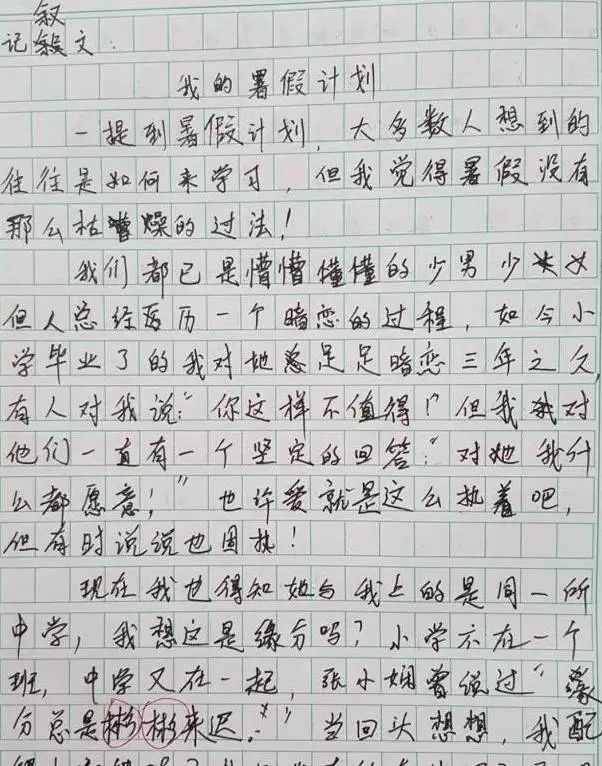 叙
记文:
我的署假计划
一提到暑假计划,大多数人想到的
往往是如何来学习,但我觉得暑假没有
那么枯燥的过法!
我们都已是懵懵懂懂的少男少女
但人总经历一个暗恋的过程,如今小
学毕业了的我对她足足暗恋三年之久,
有人对我说:"你这样不值得!"但我对
他们一直有一个坚定的回答:"对她我什
么都愿意!"也许爱就是这么执着吧,
但有时说说也固执!
现在我也得知她与我上的是同一所
中学,我想这是缘分吗?小学不在一个
班,中学又在一起,张小娴曾说过"缘
分总是彬彬来迟。"当回头想想,我配